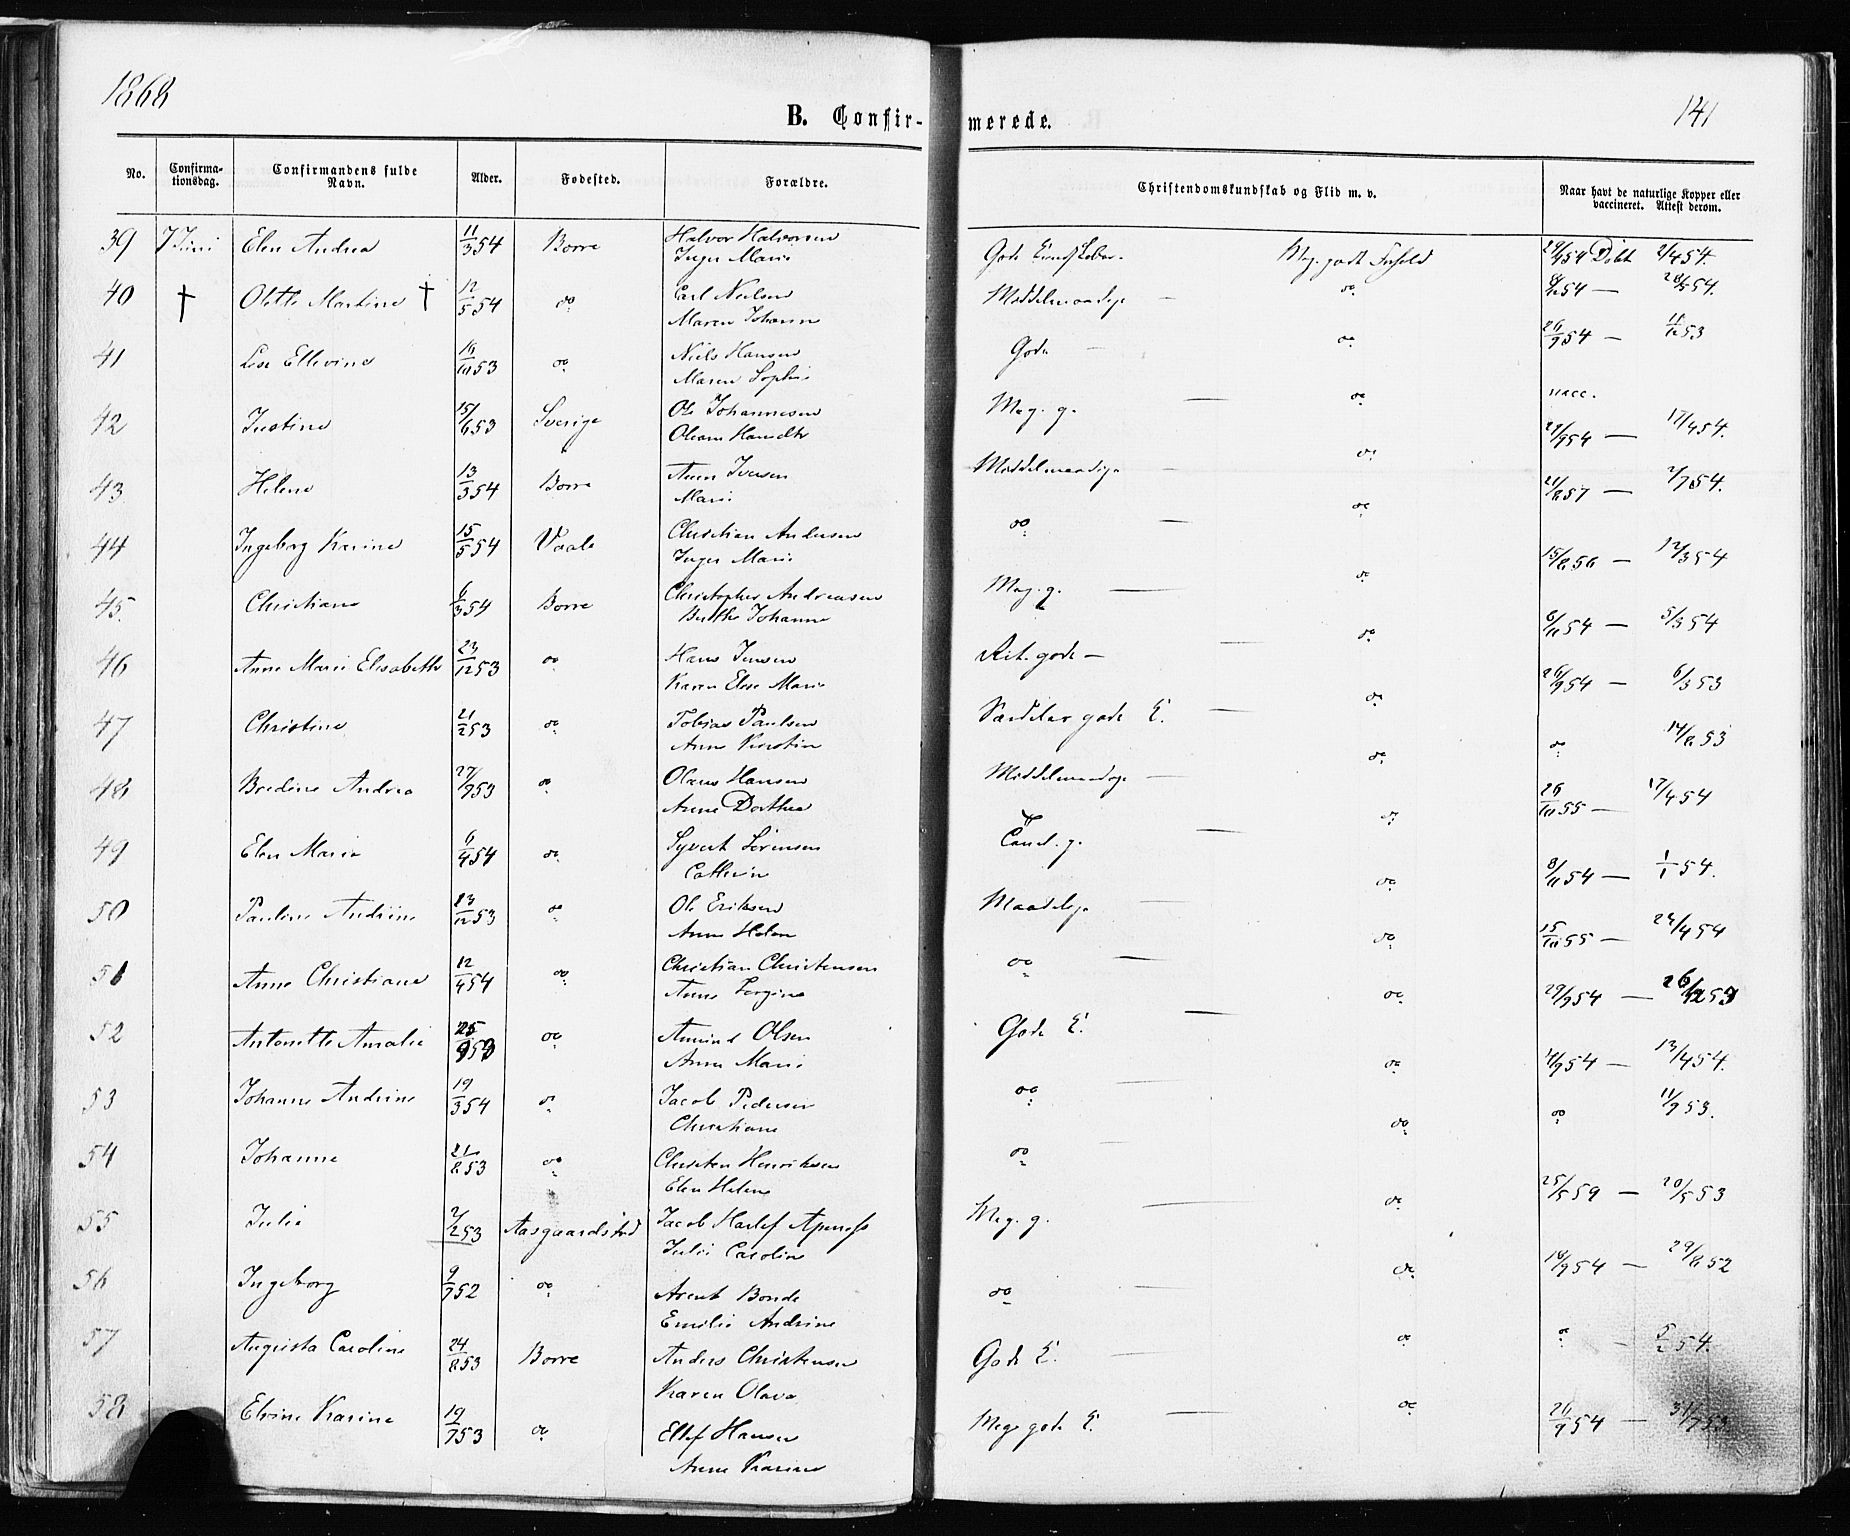 1868
B. Confirmerede.
141
No. Confirmationsdag. Confirmandens fulde Navn. Alder. Fødested. Forældre. Christendomskundskab og Flid m. v. Naar havt de naturlige Kopper eller vaccineret. Attest derom.
39 7 Juni Elen Andrea 11/3 54 Borre Halvor Halvorsen
Inger Marie Gode Kundskaber. Meg. godt Forhold 29/9 54 Døbt 2/4 54.
40 † Olette Martine † 12/5 54 do Carl Nielsen
Maren Johanne Middelmaadige — do 54 — 28/5 54.
41 Lise Ellevine 16/10 53 do Niels Hansen
Maren Sophie Gode — do 26/9 54 — 53
42 Justine 15/6 53 Sverige Ole Johannesen
Meg. g. — do vacc.
43 Helene 13/3 54 Borre Iversen
Marie Middelmaadige — do 27/9 54 — 17/4 54.
44 Ingeborg Karine 15/5 54 Vaale Christian Andersen
Inger Marie do — do 57 — 2/7 54.
45. Christiane 6/3 54 Borre Christopher Andreasen
Berthe Johanne Meg. g. — do 15/8 56 — 12/3 54
46 Anne Marie Elisabeth 23/12 53 do Hans Jensen
Karen Elise Marie gode — do 6/11 54 — 5/3 54
47 Christine 21/2 53 do Tobias Paulsen
Anne Kirstin Særdeles gode K. — do 26/9 54 — 6/3 53
48 Bredine Andrea 27/9 53 do Olaus Hansen
Anne Dorthea Middelmaadige — do do 14/8 53
49 Elen Marie 6/4 54 do Syvert Sørensen
Cathrin g. — do 26/10 55 — 17/4 54
50 Pauline Andrine 23/12 53 do Ole Eriksen
Anne Helen Maadelige — do 8/11 54 — 1/1 54.
51 Anne Christiane 12/4 54 do Christian Christensen
Anne Sorgine do — do 15/10 55 — 24/4 54
52 Antonette Amalie 25/9 53 do Amund Olsen
Anne Marie Gode K. — do 29/9 54 — 26/12 53
53 Johanne Andrine 19/3 54 do Jacob Pedersen
Christiane do — do 54 — 13/4 54.
54 Johanne 21/8 53 do Christen Henriksen
Elen Helene do — do do 11/9 53.
55 Julie 2/2 53 Aasgaardstrand Jacob
Julie Caroline Meg. g. — do 25/5 59 — 20/5 53
56 Ingeborg 9/7 52 do Arent Bonde
Emilie Andrine do — do 18/9 54 — 29/8 52
57 Augusta Caroline 24/8 53 Borre Anders Christensen
Karen Olava Gode K. — do do — 5/2 54.
58 Elvine Karine 19/7 53 do Ellef Hansen
Anne Karine Meg. gode K. — do 26/9 54 — 31/7 53